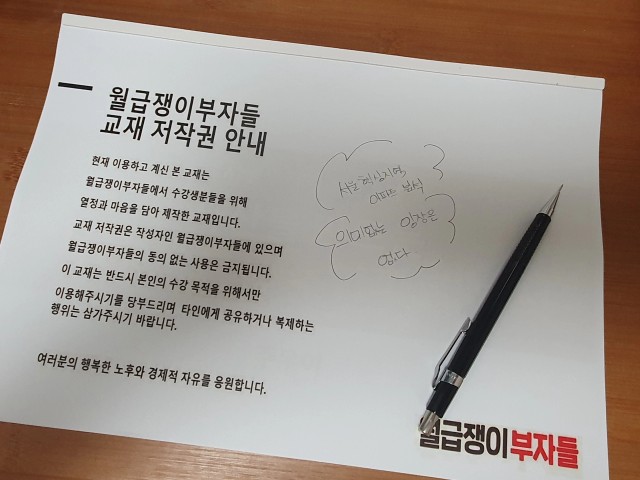 월급쟁이부자들
교재 저작권 안내
현재 이용하고 계신 본 교재는
월급쟁이부자들에서 수강생분들을 위해
열정과 마음을 담아 제작한 교재입니다.
교재 저작권은 작성자인 월급쟁이부자들에 있으며
월급쟁이부자들의 동의 없는 사용은 금지됩니다.
이 교재는 반드시 본인의 수강 목적을 위해서만
이용해주시기를 당부드리며 타인에게 공유하거나 복제하는
행위는 삼가주시기 바랍니다.
여러분의 행복한 노후와 경제적 자유를 응원합니다.
서울 핵심지역
아파트 분석
의미없는 임장은
없다
월급쟁이부자들